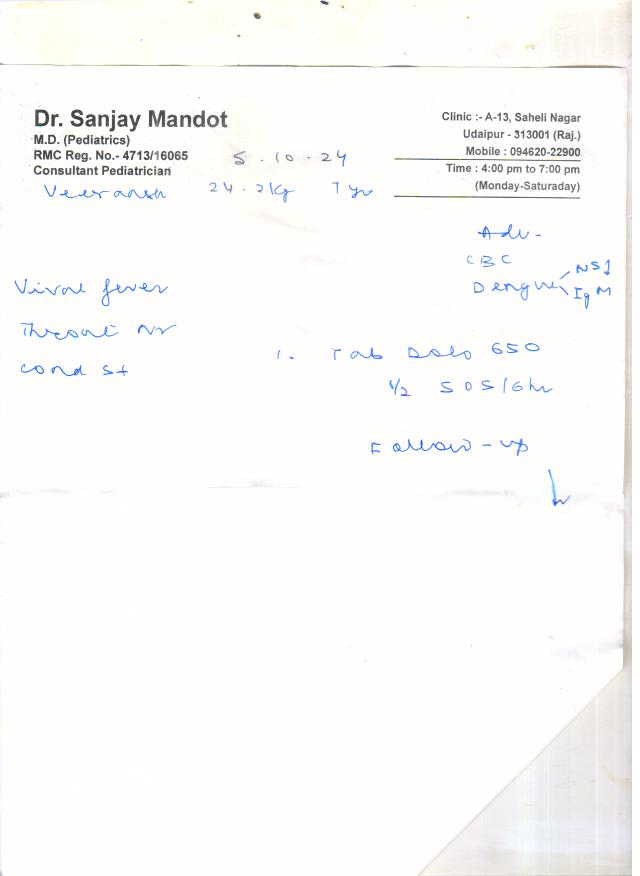 Dr. Sanjay Mandot
M.D. (Pediatrics)
RMC Reg. No.- 4713/16065
Consultant Pediatrician
Clinic :- A-13, Saheli Nagar
Udaipur - 313001 (Raj.)
Mobile : 094620-22900
Time : 4:00 pm to 7:00 pm
(Monday-Saturaday)
5.10.24
Veeransh 24.2kg 7 yr
Adv-
CBC
Dengue NS1
IgM
Viral fever
Throat Nr
cond st
1. Tab Dolo 650
1/2 SOS/6hr
Follow-up